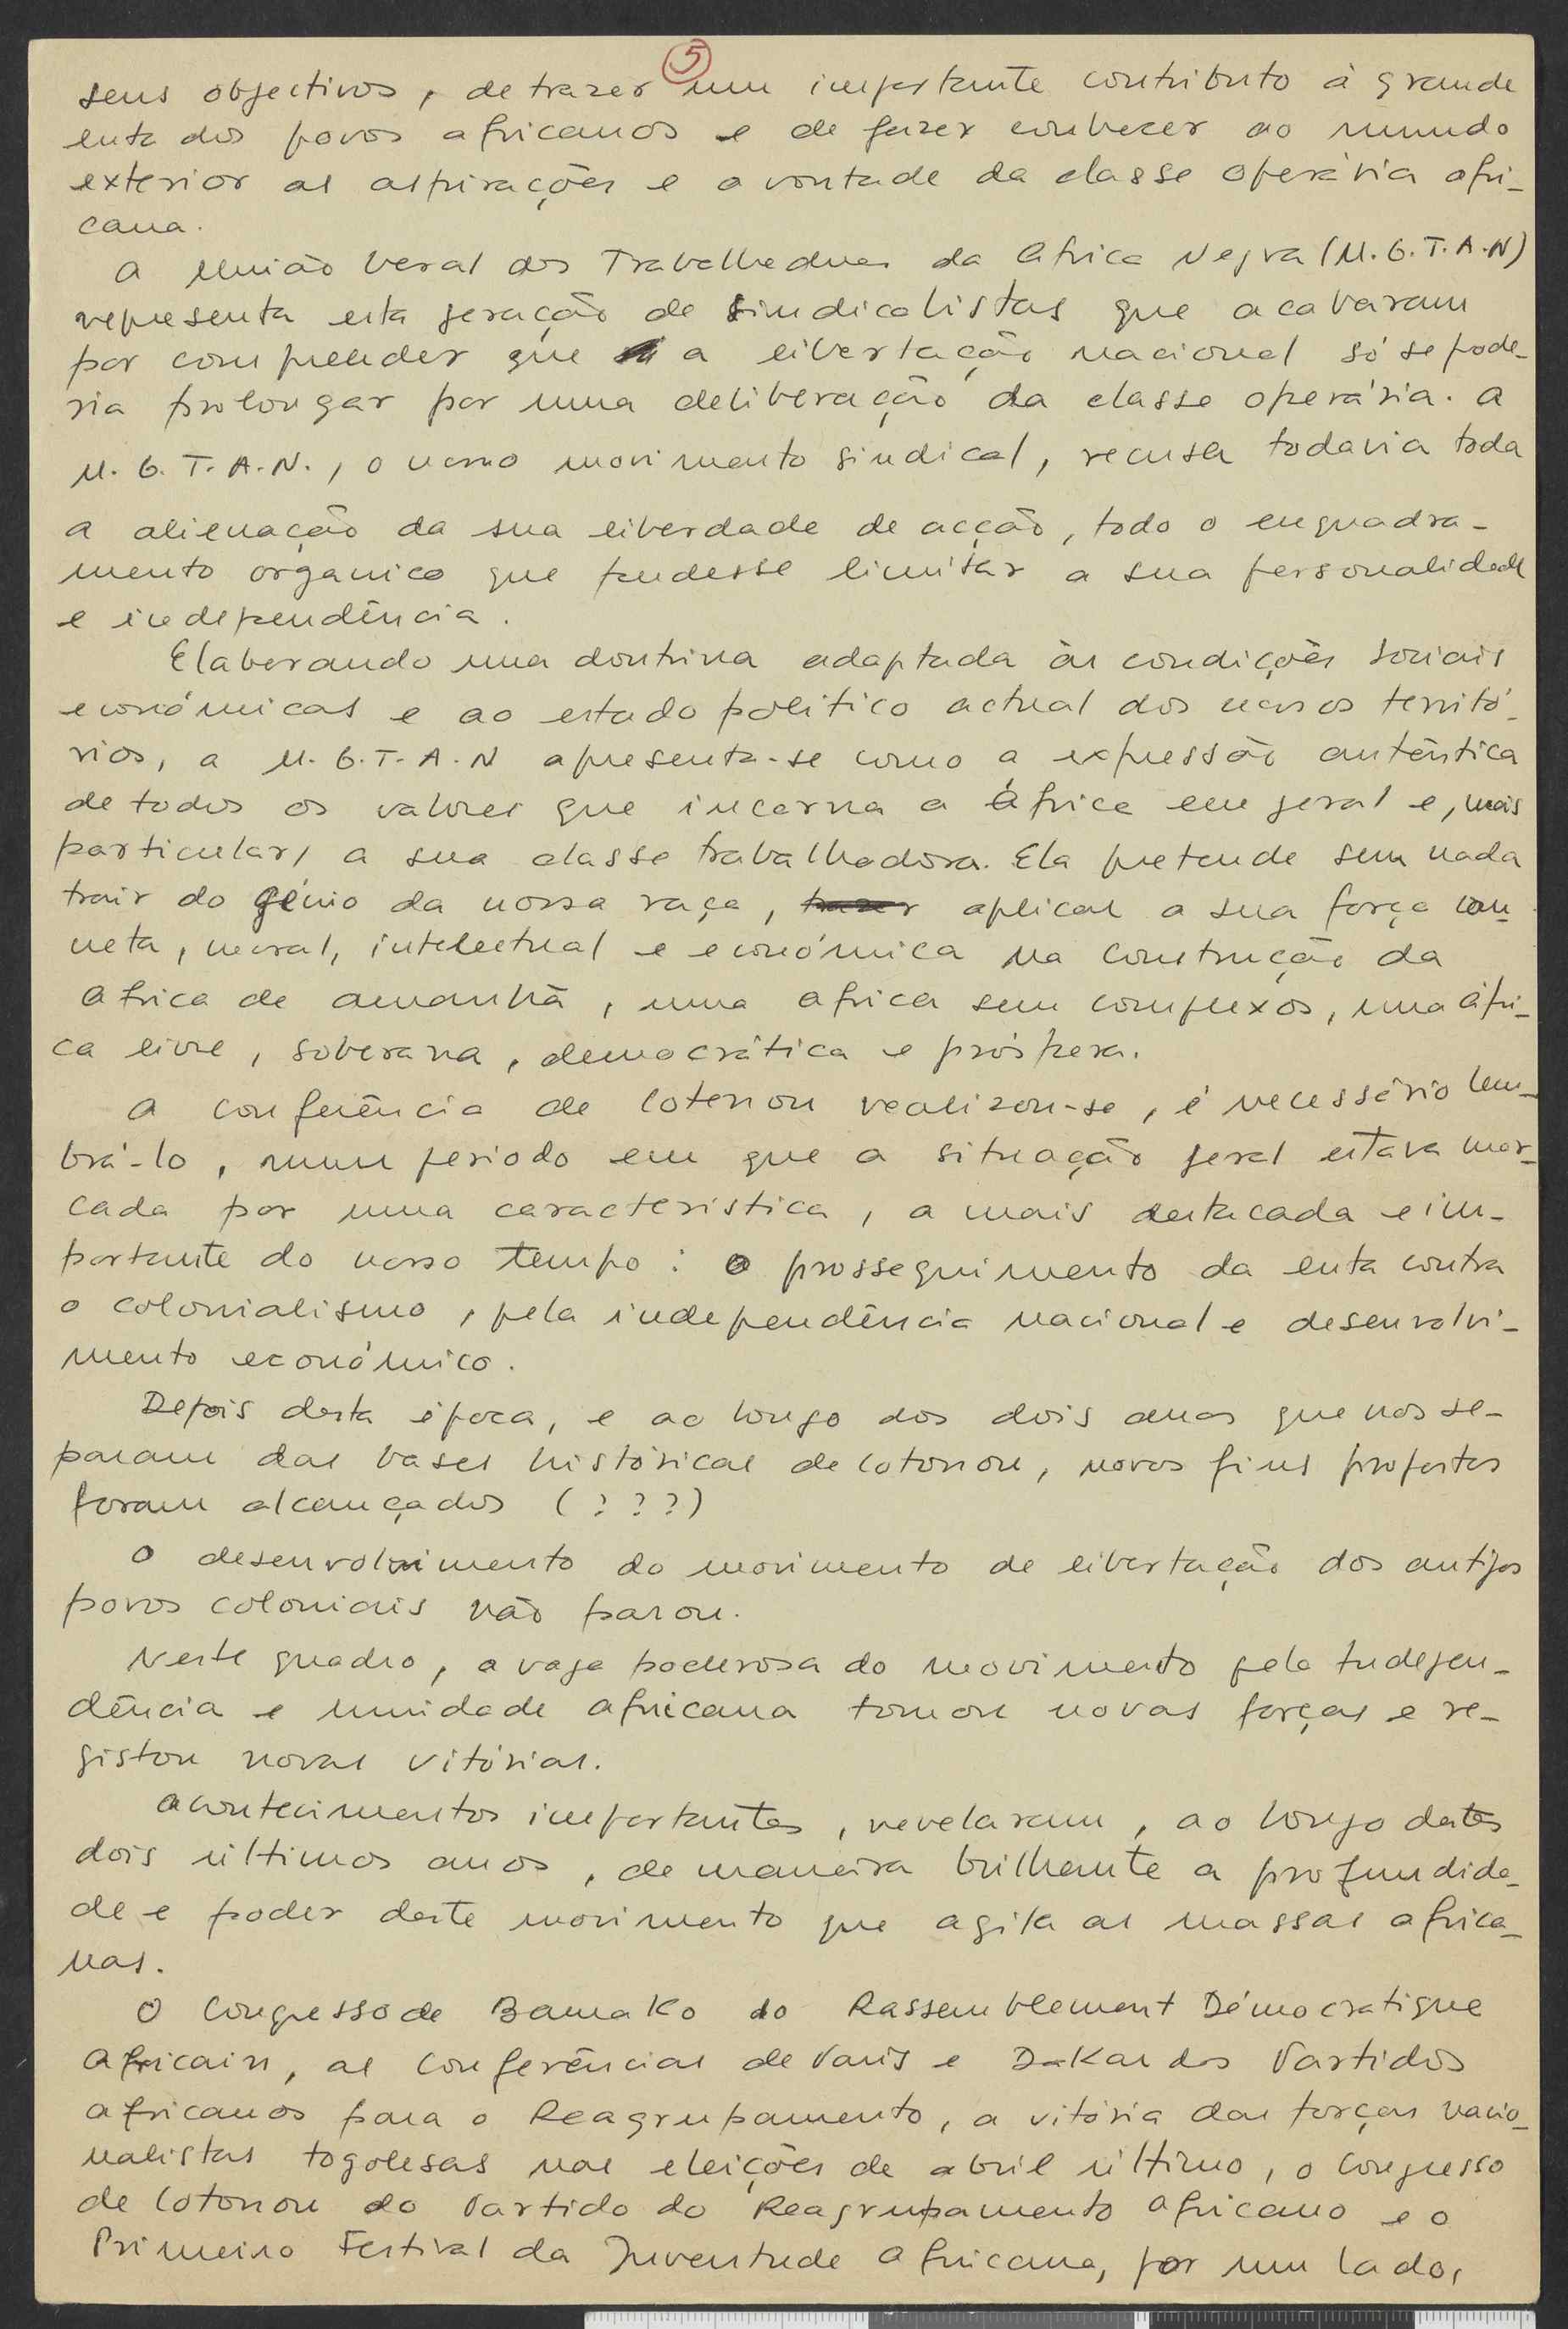 5
seus objectivos, de trazer um importante contributo à grande
luta dos povos africanos e de fazer conhecer ao mundo
exterior as aspirações e a vontade da classe operária afri-
cana.
A União Geral dos Trabalhadores da Africa Negra (U.G.T.A.N)
representa esta geração de sindicalistas que acabaram
por compreender que a libertação nacional só se pode-
ria prolongar por uma deliberação da classe operária. A
U.G.T.A.N., o nosso movimento sindical, recusa todavia toda
a alienação da sua liberdade de acção, todo o enquadra-
mento organico que pudesse limitar a sua personalidade
e independência.
Elaborando uma doutrina adaptada às condições sociais
económicas e ao estado politico actual dos nossos territó-
rios, a U.G.T.A.N apresenta-se como a expressão autêntica
de todos os valores que incarna a África em geral e, mais
particular, a sua classe trabalhadora. Ela pretende sem nada
trair do génio da nossa raça, trazer aplicar a sua força con-
creta, moral, intelectual e económica na construção da
Africa de amanhã, uma Africa sem complexos, uma Áfri-
ca livre, soberana, democrática e próspera.
A conferência de Cotonou realizou-se, é necessário lem-
brá-lo, num periodo em que a situação geral estava mar-
cada por uma caracteristica, a mais destacada e im-
portante do nosso tempo: o prosseguimento da luta contra
o colonialismo, pela independência nacional e desenvolvi-
mento económico.
Depois desta época, e ao longo dos dois anos que nos se-
param das bases históricas de Cotonou, novos fins propostos
foram alcançados (???)
O desenvolvimento do movimento de libertação dos antigos
povos coloniais não parou.
Neste quadro, a vaga poderosa do movimento pela Indepen-
dência e unidade africana tomou novas forças e re-
gistou novas vitórias.
Acontecimentos importantes, revelaram, ao longo destes
dois últimos anos, de maneira brilhante a profundida-
de e poder deste movimento que agita as massas africa-
nas.
O Congresso de Bamako do Rassemblement Démocratique
Africain, as Conferências de Paris e Dakar dos Partidos
Africanos para o Reagrupamento, a vitória das forças nacio-
nalistas togolesas nas eleições de abril último, o Congresso
de Cotonou do Partido do Reagrupamento Africano e o
Primeiro Festival da Juventude Africana, por um lado,